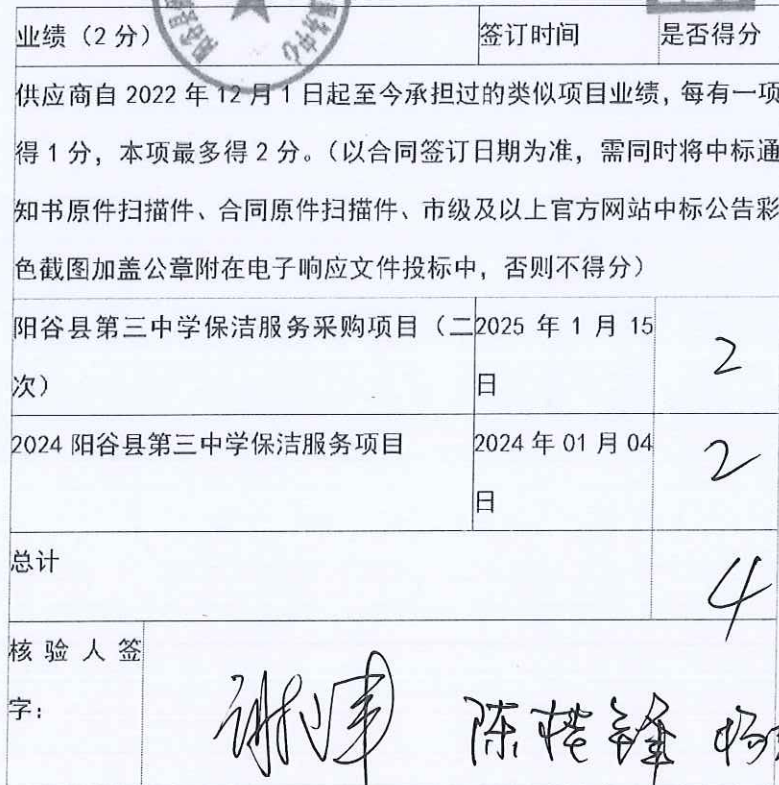 业绩（2分） 签订时间 是否得分
供应商自 2022 年 12 月 1 日起至今承担过的类似项目业绩，每有一项
得 1 分，本项最多得 2 分。（以合同签订日期为准，需同时将中标通
知书原件扫描件、合同原件扫描件、市级及以上官方网站中标公告彩
色截图加盖公章附在电子响应文件投标中，否则不得分）
阳谷县第三中学保洁服务采购项目（二 2025 年 1 月 15
次） 日 2
2024 阳谷县第三中学保洁服务项目 2024 年 01 月 04
日 2
总计 4
核验人签
字：